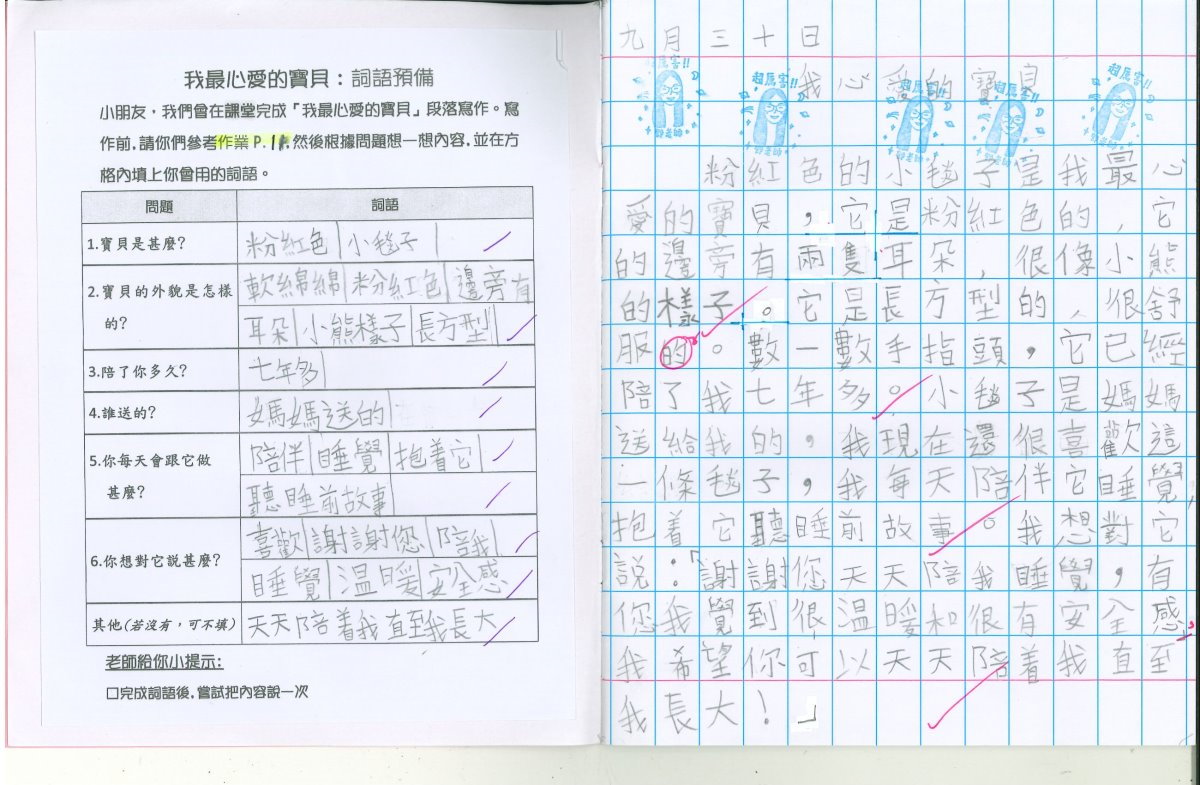 我最心愛的寶貝：詞語預備
小朋友，我們會在課堂完成「我最心愛的寶貝」段落寫作。寫
作前，請你們參考作業 P.11，然後根據問題想一想內容，並在方
格內填上你會用的詞語。
問題 詞語
1.寶貝是甚麼? 粉紅色 小毯子
2.寶貝的外貌是怎樣的? 軟綿綿 粉紅色 邊旁有
耳朵 小熊樣子 長方型
3.陪了你多久? 七年多
4.誰送的? 媽媽送的
5.你每天會跟它做甚麼? 陪伴 睡覺 抱着它
聽睡前故事
6.你想對它說甚麼? 喜歡 謝謝您 陪我
睡覺 溫暖 安全感
其他(若沒有，可不填) 天天陪着我直至我長大
老師給你小提示:
□完成詞語後，嘗試把內容說一次
九月三十日
我心愛的寶貝
超厲害!!
超厲害!!
超厲害!!
超厲害!!
超厲害!!
粉紅色的小毯子是我最心
愛的寶貝，它是粉紅色的，它
的邊旁有兩隻耳朵，很像小熊
的樣子。它是長方型的，很舒
服的。數一數手指頭，它已經
陪了我七年多。小毯子是媽媽
送給我的，我現在還很喜歡這
一條毯子，我每天陪伴它睡覺，
抱着它聽睡前故事。我想對它
說：「謝謝您天天陪我睡覺，有
您我覺到很溫暖和很有安全感，
我希望你可以天天陪着我直至
我長大！」